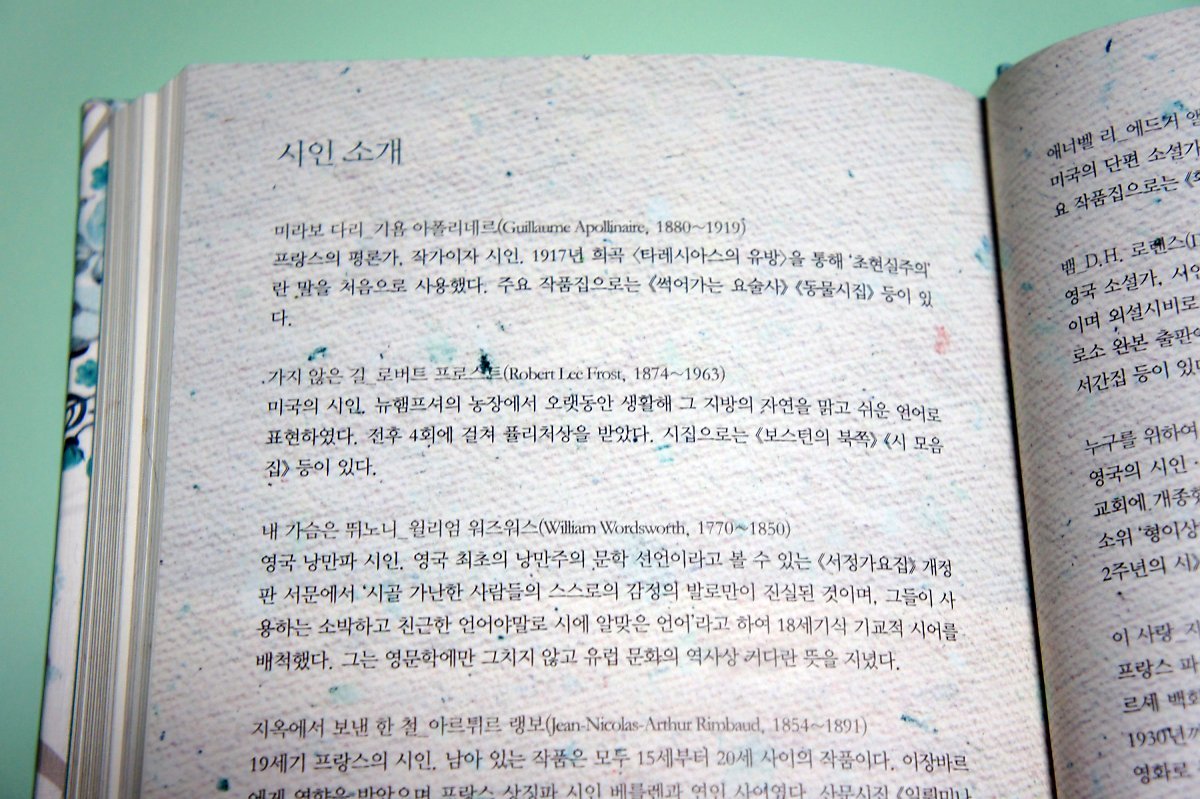 시인 소개
미라보 다리_기욤 아폴리네르(Guillaume Apollinaire, 1880~1919)
프랑스의 평론가, 작가이자 시인. 1917년 희곡 〈타레시아스의 유방〉을 통해 '초현실주의'
란 말을 처음으로 사용했다. 주요 작품집으로는 《썩어가는 요술사》 《동물시집》 등이 있
다.
가지 않은 길_로버트 프로스트(Robert Lee Frost, 1874~1963)
미국의 시인. 뉴햄프셔의 농장에서 오랫동안 생활해 그 지방의 자연을 맑고 쉬운 언어로
표현하였다. 전후 4회에 걸쳐 퓰리처상을 받았다. 시집으로는 《보스턴의 북쪽》 《시 모음
집》 등이 있다.
내 가슴은 뛰노니_윌리엄 워즈워스(William Wordsworth, 1770~1850)
영국 낭만파 시인. 영국 최초의 낭만주의 문학 선언이라고 볼 수 있는 《서정가요집》 개정
판 서문에서 '시골 가난한 사람들의 스스로의 감정의 발로만이 진실된 것이며, 그들이 사
용하는 소박하고 친근한 언어야말로 시에 알맞은 언어'라고 하여 18세기식 기교적 시어를
배척했다. 그는 영문학에만 그치지 않고 유럽 문화의 역사상 커다란 뜻을 지녔다.
지옥에서 보낸 한 철_아르튀르 랭보(Jean-Nicolas-Arthur Rimbaud, 1854~1891)
19세기 프랑스의 시인. 남아 있는 작품은 모두 15세부터 20세 사이의 작품이다. 이장바르
에게 영향을 받았으며 프랑스 상징파 시인 베를렌과 연인 사이였다. 산문시집
애너벨 리_에드거
미국의 단편 소설가
요 작품집으로는
뱀_D.H. 로렌스
영국 소설가,
이며 외설시비로
로소 완본
서간집 등이
누구를 위하여
영국의 시인
교회에
소위 '형이상
2주년의 시》
이 사랑
프랑스
르세
1930년
영화로